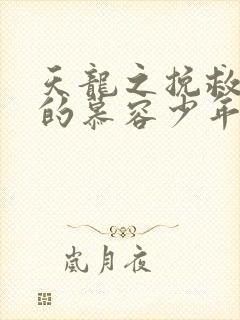 天龍之挽救
的慕容少年
嵐月夜